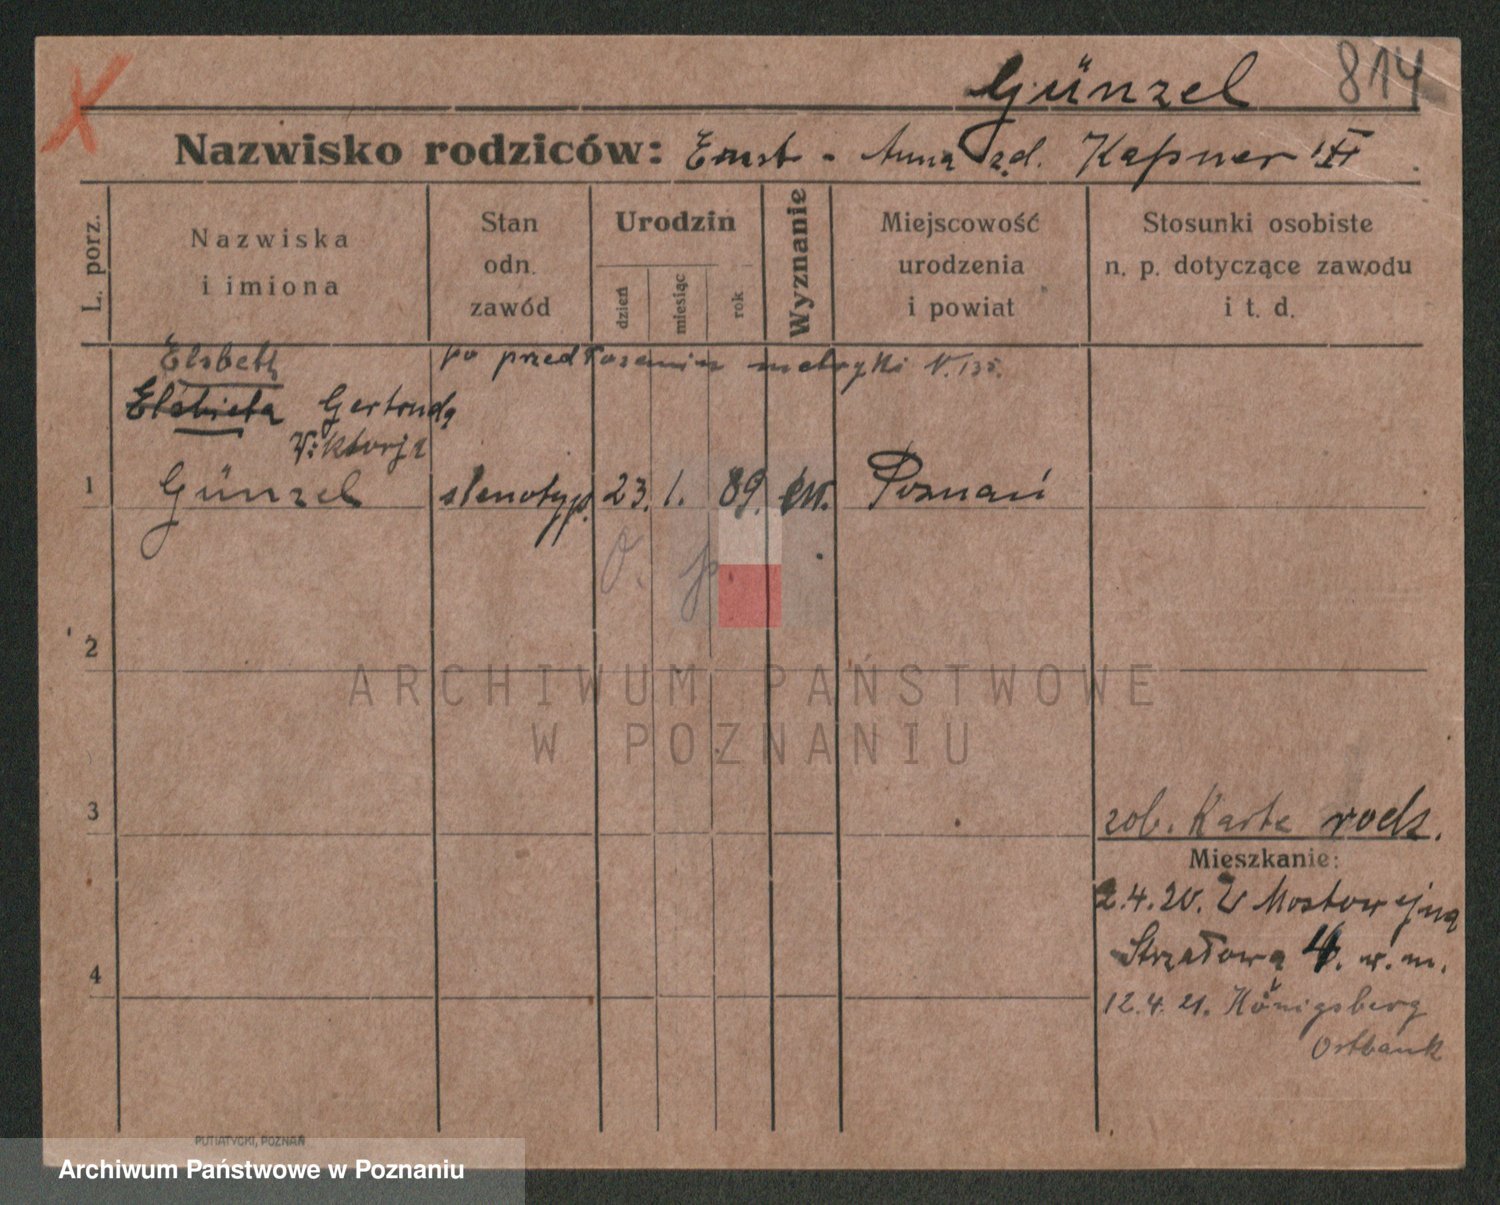 Günzel 814
Nazwisko rodziców: Ernst - Anna zd. Kapner
L. porz.
Nazwiska i imiona
Stan odn. zawód
Urodzin
dzień
miesiąc
rok
Wyznanie
Miejscowość urodzenia i powiat
Stosunki osobiste n. p. dotyczące zawodu i t. d.
Elsbeth po przedłożeniu metryki N.
Elżbieta Gertruda
Viktorja
1 Günzel stenotyp. 23. 1. 89. ew. Poznań
o. p.
2
ARCHIWUM PAŃSTWOWE
W POZNANIU
3 zob. Karte rodz.
Mieszkanie:
2.4.20. Z Mostowej na
4 Strzałową 4. w. m.
12.4.21. Königsberg
Ostbank
PUTIATYCKI, POZNAŃ
Archiwum Państwowe w Poznaniu